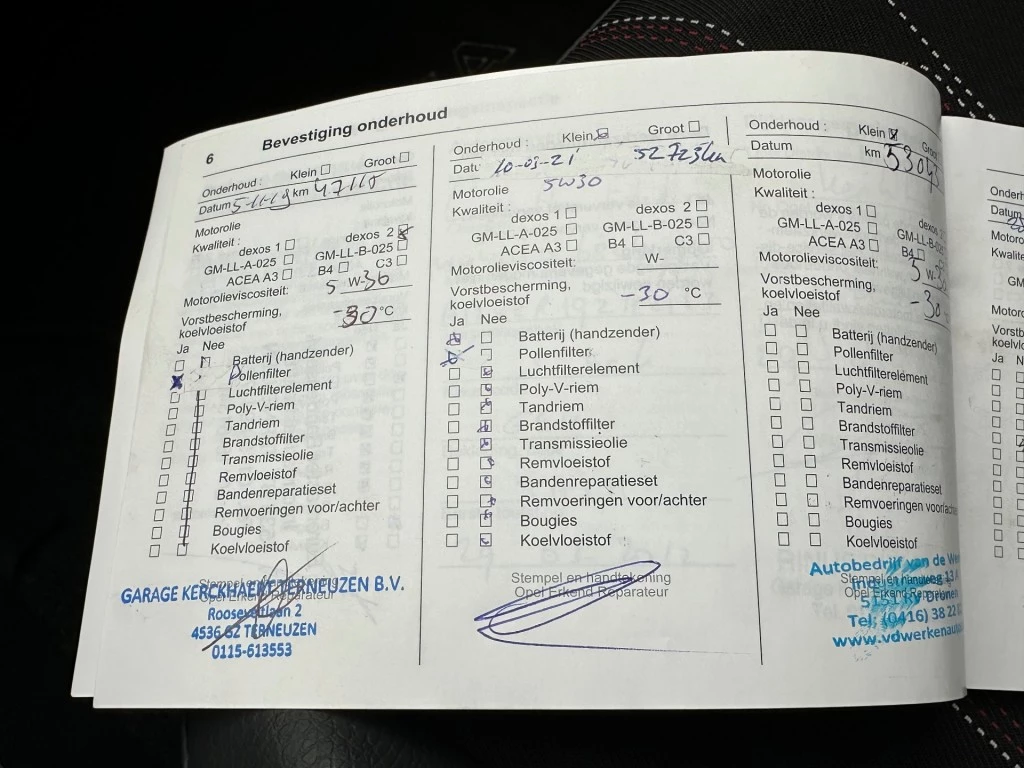 6 Bevestiging onderhoud
Onderhoud : Klein Groot
Datum 5-11-19 km 47115
Motorolie
Kwaliteit :
dexos 1 dexos 2
GM-LL-A-025 GM-LL-B-025
ACEA A3 B4 C3
Motorolieviscositeit: 5 W-30
Vorstbescherming,
koelvloeistof -30 °C
Ja Nee
Batterij (handzender)
Pollenfilter
Luchtfilterelement
Poly-V-riem
Tandriem
Brandstoffilter
Transmissieolie
Remvloeistof
Bandenreparatieset
Remvoeringen voor/achter
Bougies
Koelvloeistof
Stempel en handtekening
Opel Erkend Reparateur
GARAGE KERCKHAERT TERNEUZEN B.V.
Rooseveltlaan 2
4536 GZ TERNEUZEN
0115-613553
Onderhoud : Klein Groot
Datu 10-03-21 52723km
Motorolie 5W30
Kwaliteit :
dexos 1 dexos 2
GM-LL-A-025 GM-LL-B-025
ACEA A3 B4 C3
Motorolieviscositeit: W-
Vorstbescherming,
koelvloeistof -30 °C
Ja Nee
Batterij (handzender)
Pollenfilter
Luchtfilterelement
Poly-V-riem
Tandriem
Brandstoffilter
Transmissieolie
Remvloeistof
Bandenreparatieset
Remvoeringen voor/achter
Bougies
Koelvloeistof
Stempel en handtekening
Opel Erkend Reparateur
Onderhoud : Klein Groot
Datum km
Motorolie
Kwaliteit :
dexos 1 dexos
GM-LL-A-025 GM-LL-B-02
ACEA A3 B4
Motorolieviscositeit: 5 W-3
Vorstbescherming,
koelvloeistof -30
Ja Nee
Batterij (handzender)
Pollenfilter
Luchtfilterelement
Poly-V-riem
Tandriem
Brandstoffilter
Transmissieolie
Remvloeistof
Bandenreparatieset
Remvoeringen voor/ach
Bougies
Koelvloeistof
Autobedrijf van de We
Industrieweg 13
5151 Drunen
Tel: (0416) 38 22
www.vdwerkenauto
Onderh
Datum
Motoro
Kwalite
GM
Motoro
Vorstb
koelvl
Ja N